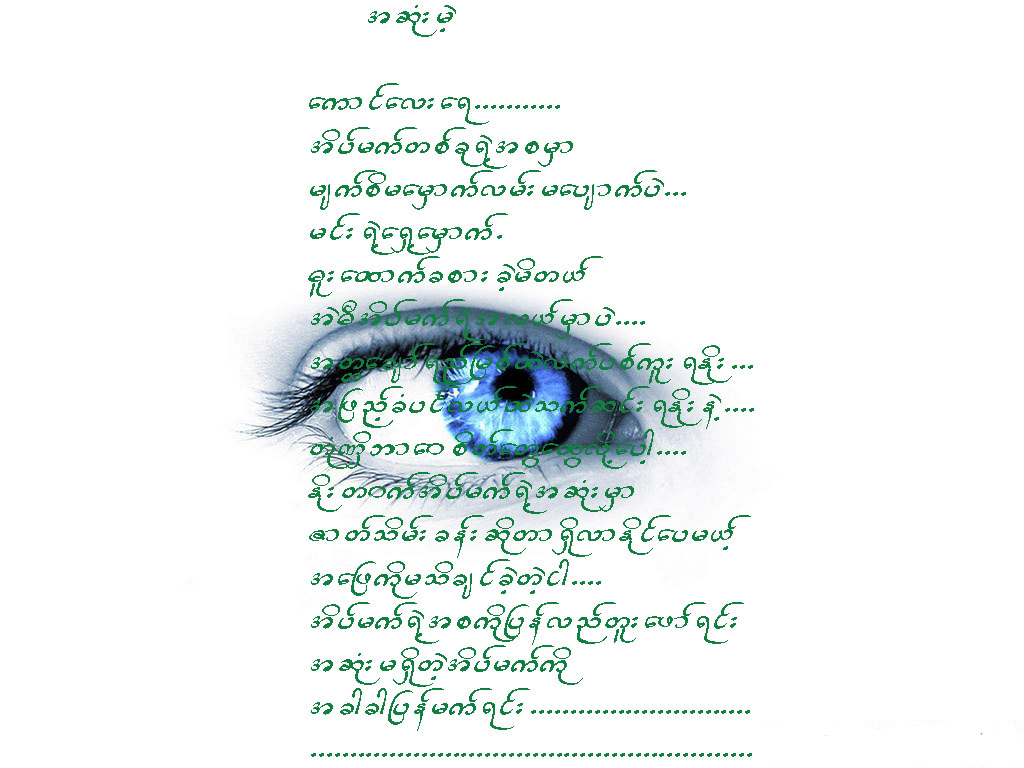 အဆုံးမဲ့
ကောင်လေးရေ...........
အိပ်မက်တစ်ခုရဲ့အစမှာ
မျက်စိမမှောက်လမ်းမပျောက်ပဲ...
မင်းရဲ့ရှေ့မှောက်.
ဒူးထောက်ခစားခဲ့မိတယ်
အဲဒီအိပ်မက်ရဲ့အလယ်မှာပဲ....
အတ္တချော်ရည်မြစ်ထဲလက်ပစ်ကူးရနိုး...
အဖြည့်ခံပင်လယ်ထဲသက်ဆင်းရနိုးနဲ့....
တုံဏှိဘာဝေစိတ်တွေထွေလို့ပေါ့....
နိုးတဝက်အိပ်မက်ရဲ့အဆုံးမှာ
ဇာတ်သိမ်းခန်းဆိုတာရှိလာနိုင်ပေမယ့်
အဖြေကိုမသိချင်ခဲ့တဲ့ငါ....
အိပ်မက်ရဲ့အစကိုပြန်လည်တူးဖော်ရင်း
အဆုံးမရှိတဲ့အိပ်မက်ကို
အခါခါပြန်မက်ရင်း............................
........................................................